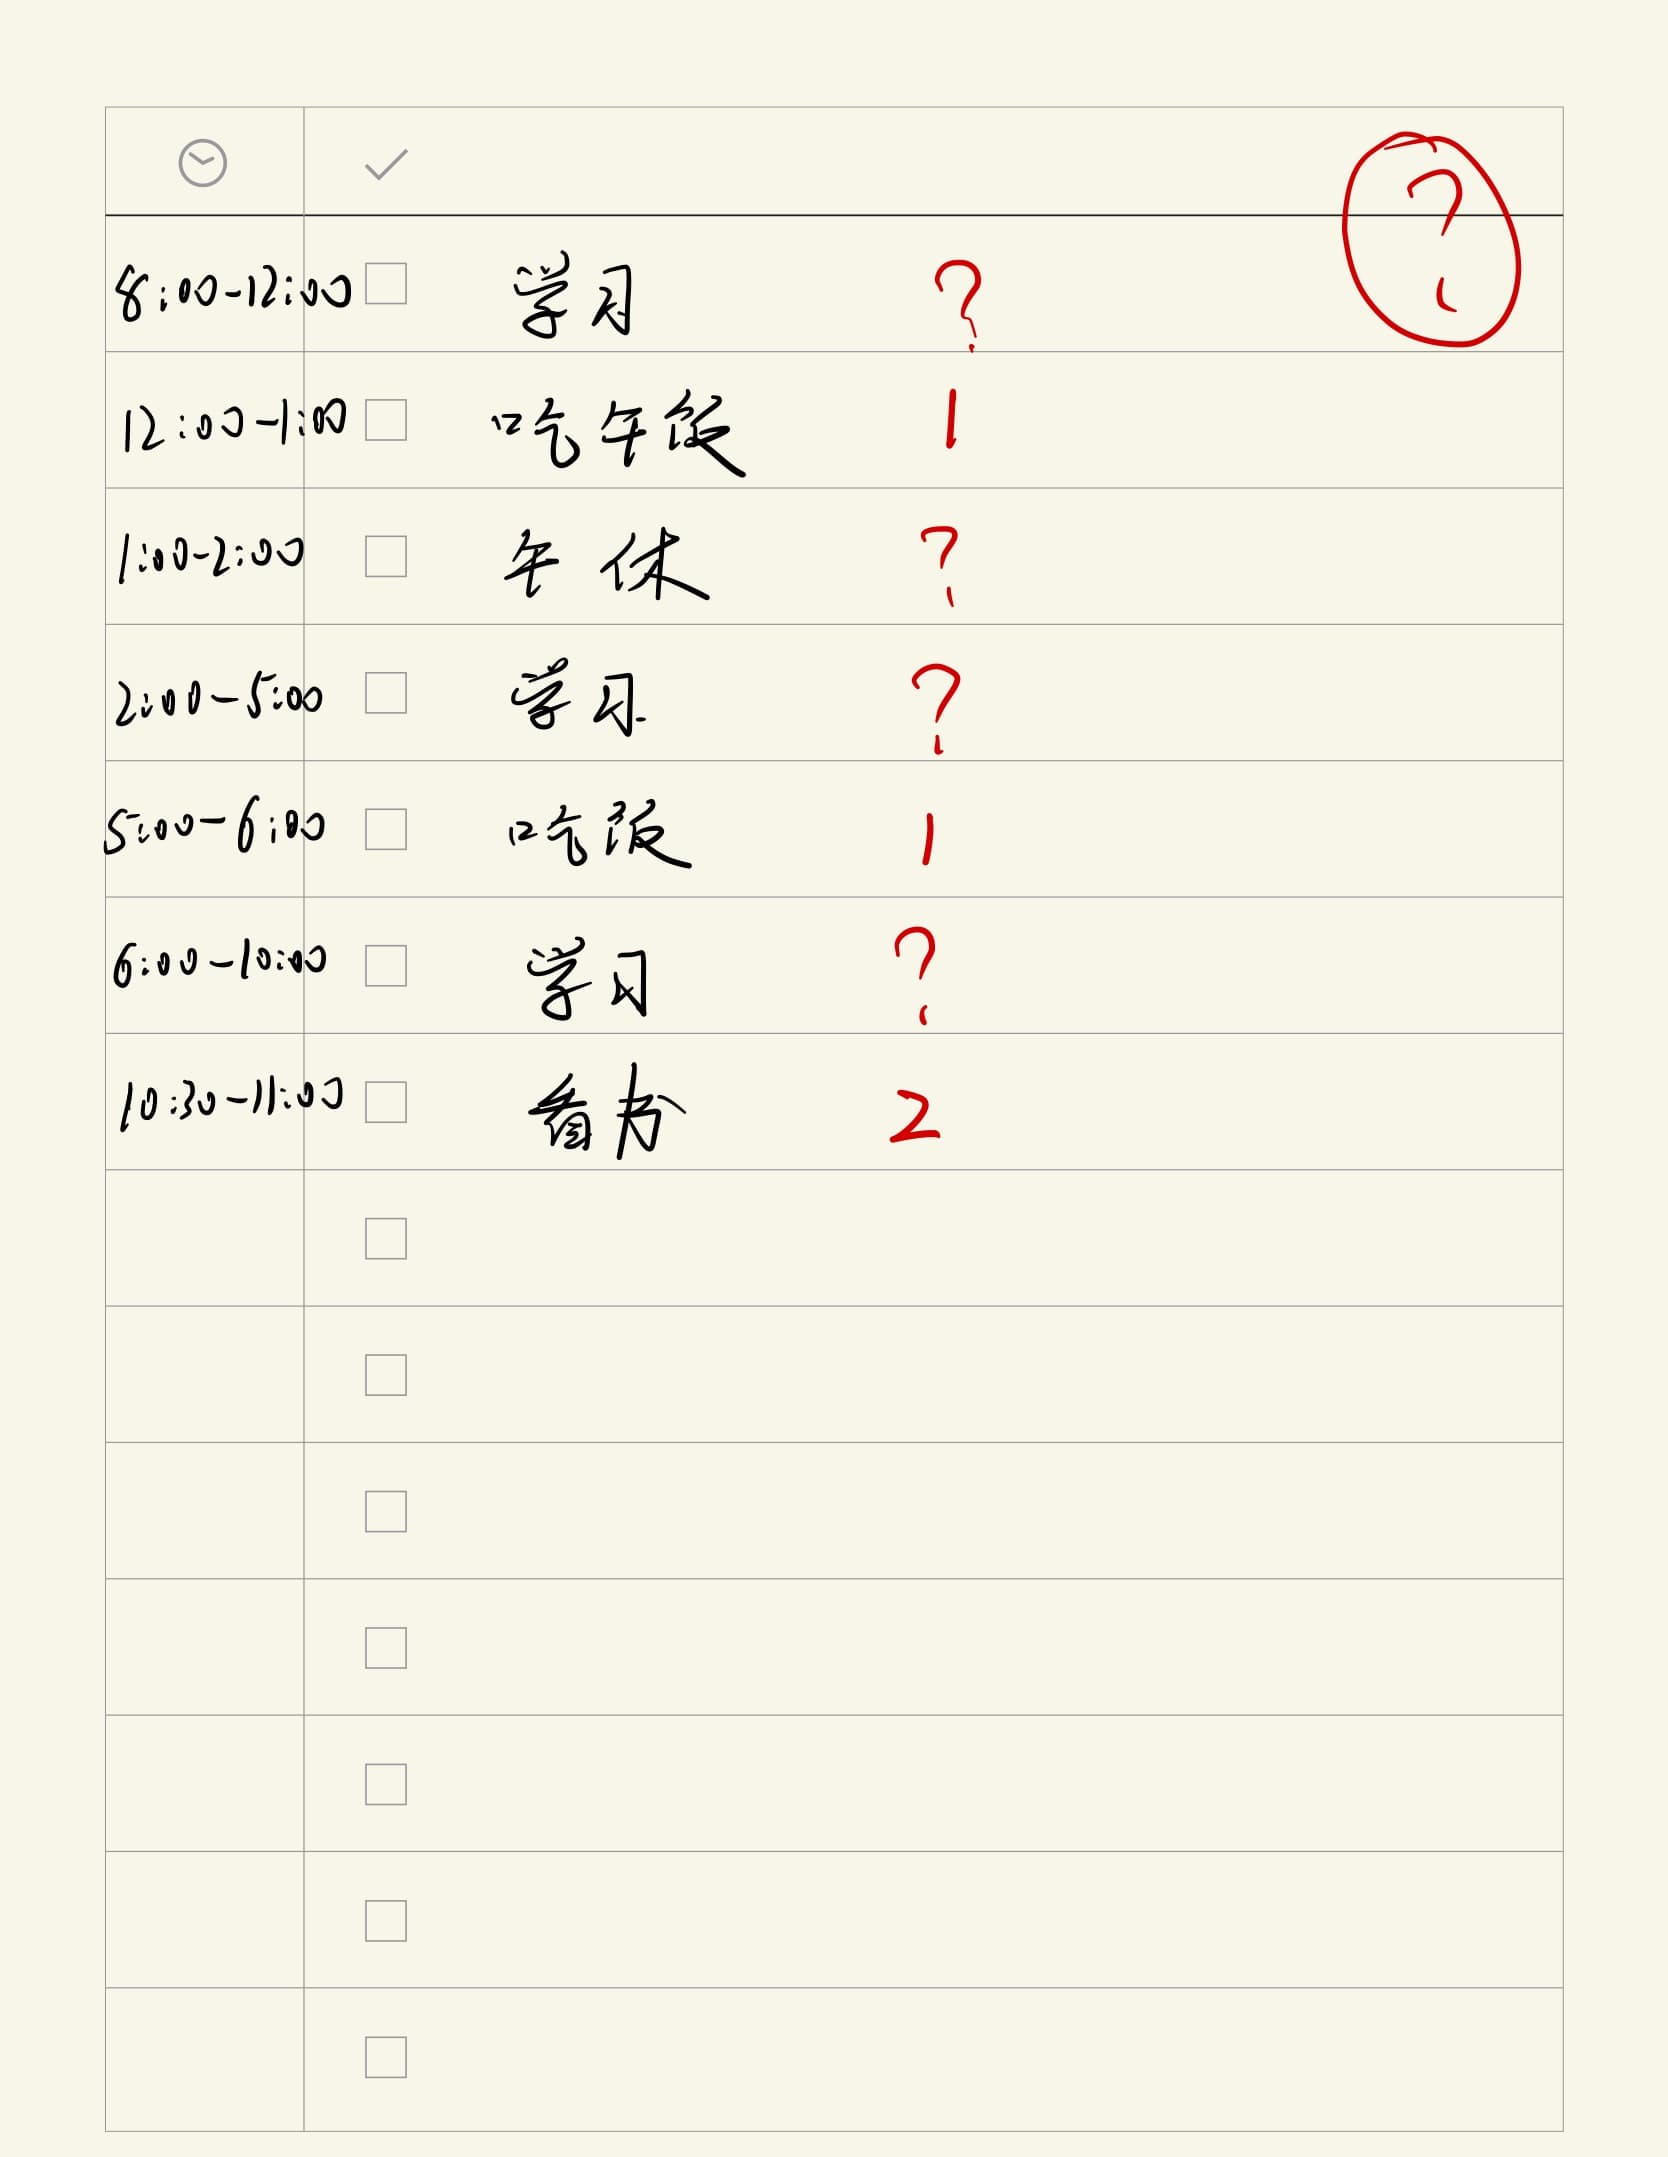 ?
8:00-12:00 学习 ?
12:00-1:00 吃午饭 1
1:00-2:00 午休 ?
2:00-5:00 学习 ?
5:00-6:00 吃饭 1
6:00-10:00 学习 ?
10:30-11:00 看书 2